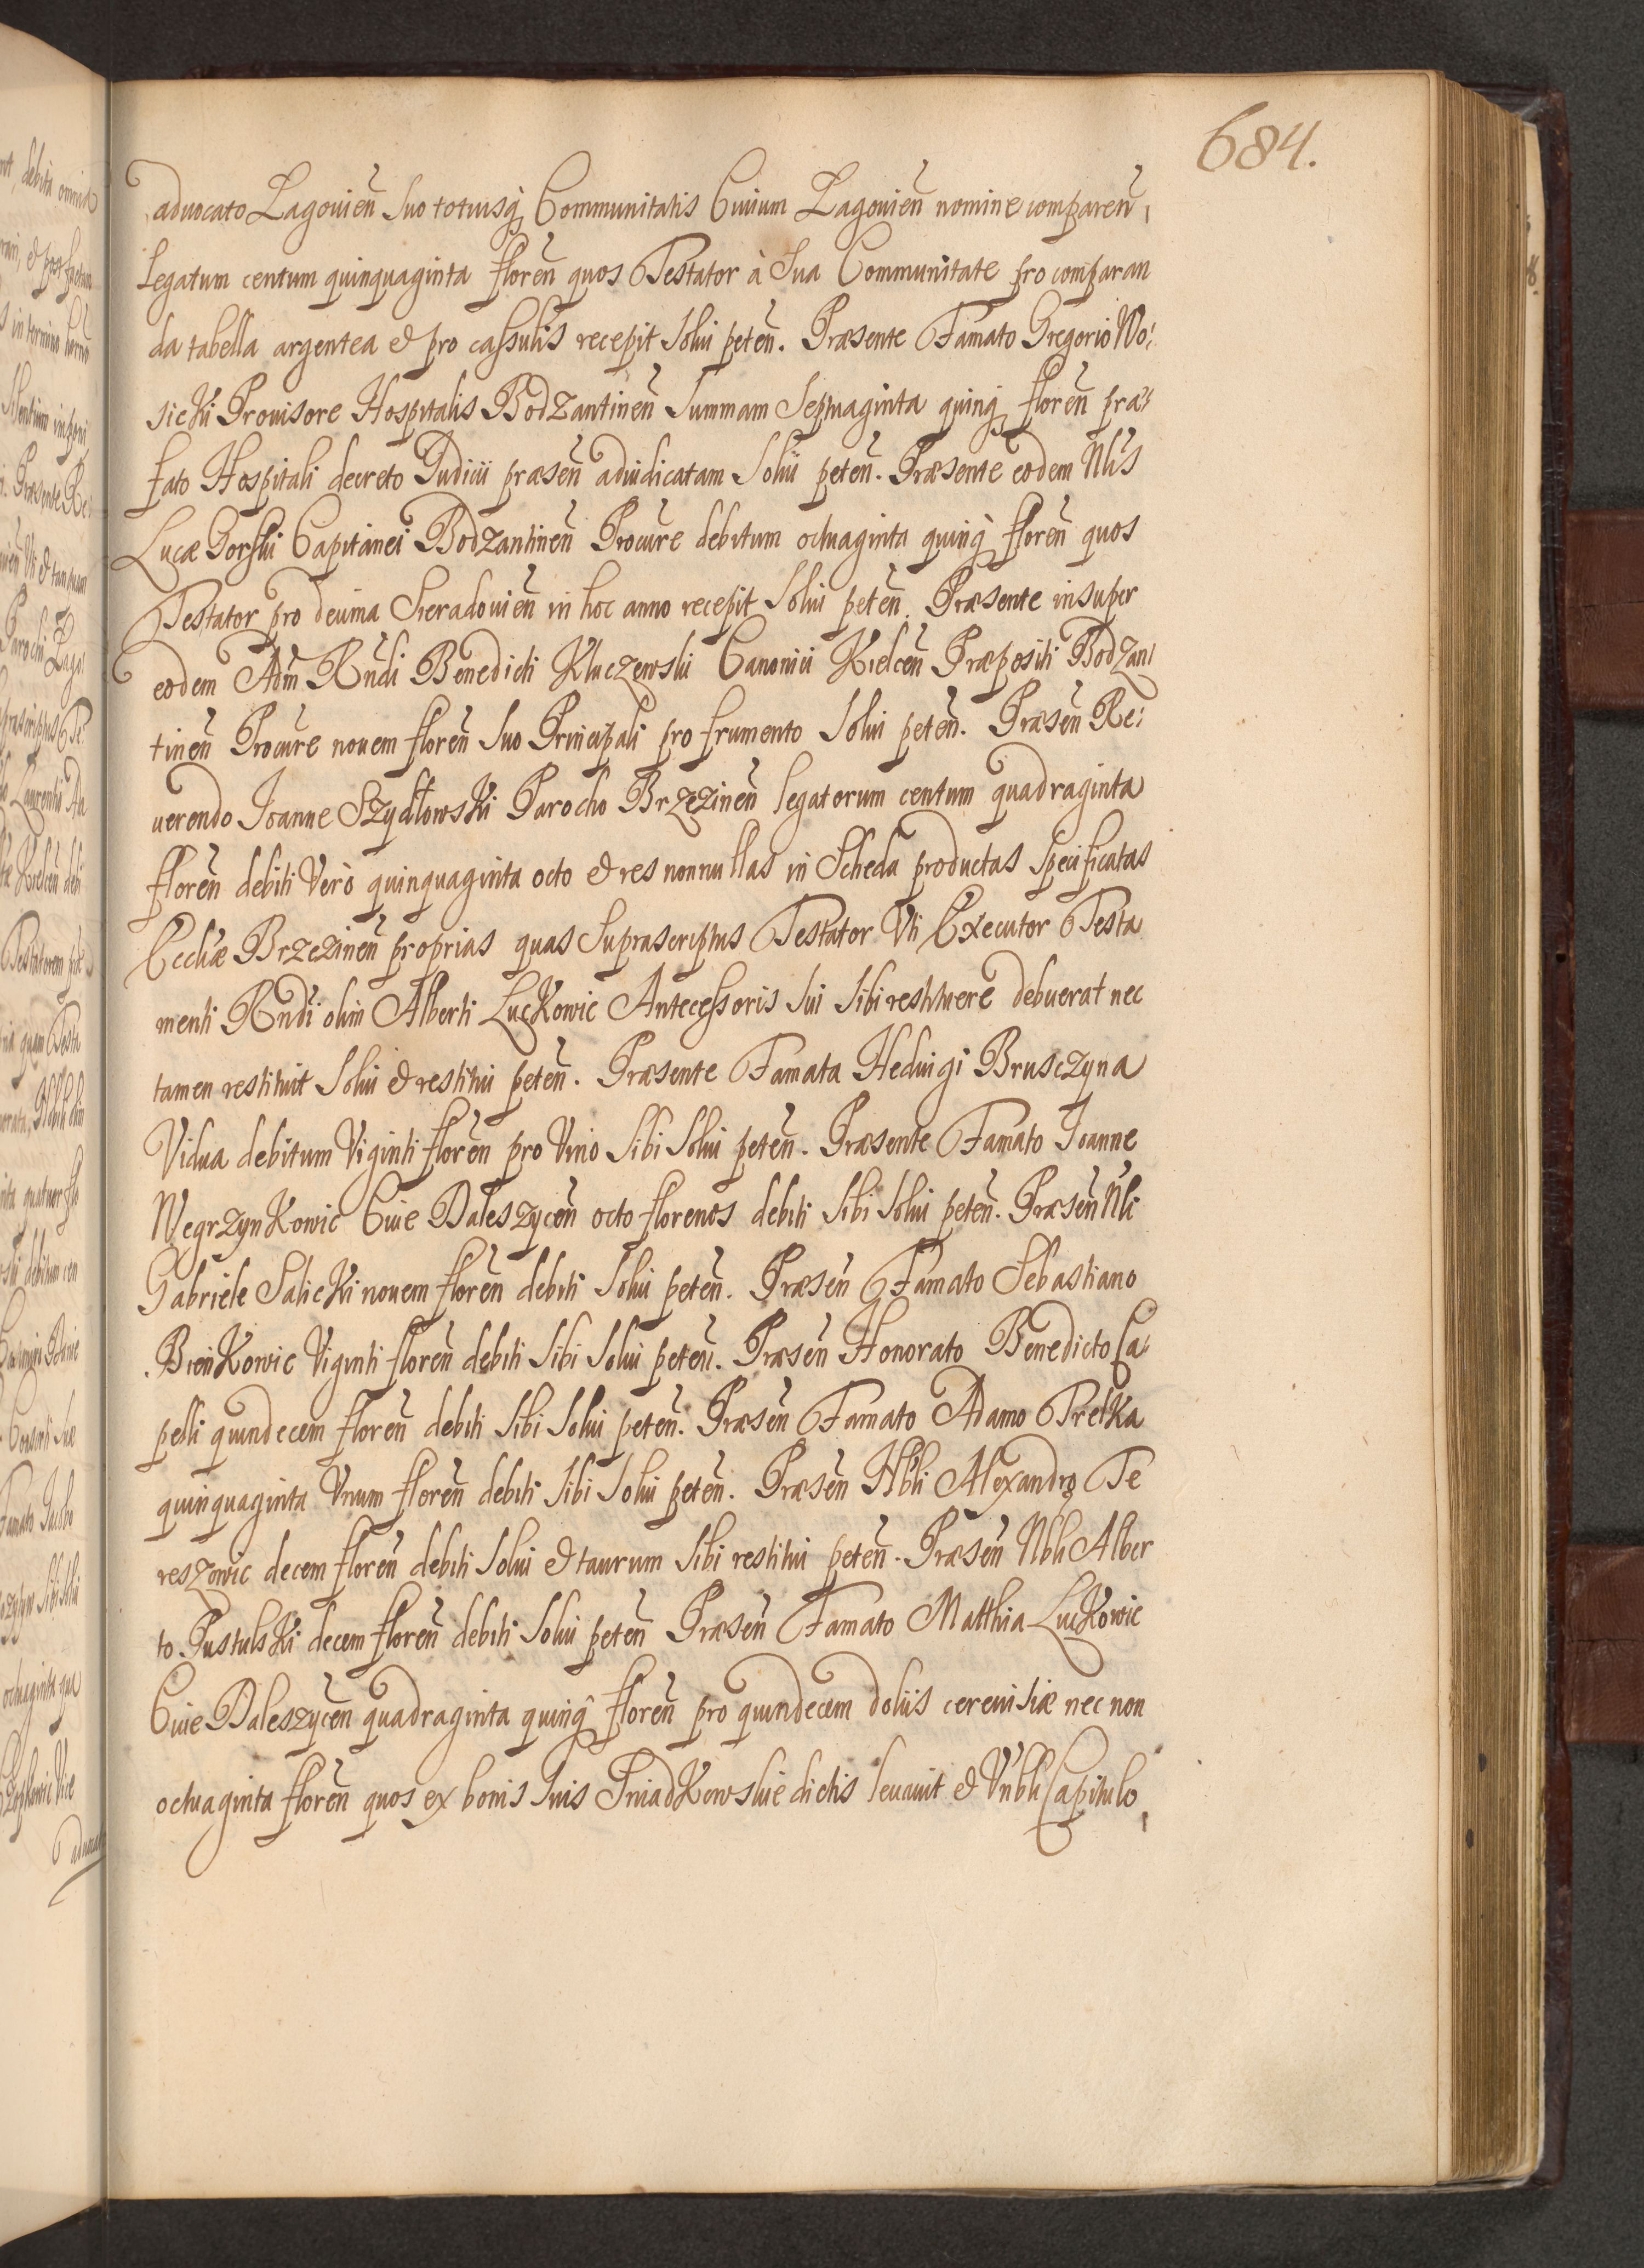 684.
aduocato Lagouien̄ suo totiusq̨ Communitatis Ciuium Lagouien̄ nomine comparen̄,
Legatum centum quinquaginta floren̄ quos Testator à sua Communitate pro comparan
da tabella argentea & pro cassulis recepit solui peten̄. Præsente Famato Gregorio No:
sicki Prouisore Hospitalis Bodzantinen̄ summam septuaginta quinq̨ floren̄ præ:
fato Hospitali decreto Iudicii præsen̄ adiudicatam solui peten̄. Præsente eodem Nlis
Lucæ Gorski Capitanei Bodzantinen̄ Procure debitum octuaginta quinq̨ floren̄ quos
Testator pro decima Sieradouien̄ in hoc anno recepit solui peten̄. Præsente insuper
eodem Adm̄ Rndi Benedicti Kluczewski Canonici Kielcen̄ Præpositi Bodzan:
tinen̄ Procure nouem floren̄ suo Principali pro frumento solui peten̄. Præsen̄ Re:
uerendo Ioanne Szydłowski Parocho Brzezinen̄ legatorum centum quadraginta
floren̄ debiti verò quinquaginta octo & res nonnullas in Scheda productas specificatas
Eccliæ Brzezinen̄ proprias quas suprascriptus Testator Vti Executor Testa
menti Rndi olim Alberti Luckowic Antecessoris sui sibi restituere debuerat nec
tamen restituit solui & restitui peten̄. Præsente Famata Heduigi Brusczyna
Vidua debitum Viginti floren̄ pro Vino sibi solui peten̄. Præsente Famato Ioanne
Węgrzynkowic Ciue Daleszycen̄ octo florenos debiti sibi solui peten̄. Præsen̄ Nli
Gabriele Salicki nouem floren̄ debiti solui peten̄. Præsen̄ Famato Sebastiano
Bienkowic Viginti floren̄ debiti sibi solui peten̄. Præsen̄ Honorato Benedicto Ca:
pelli quindecem floren̄ debiti sibi solui peten̄. Præsen̄ Famato Adamo Tretka
quinquaginta Vnum floren̄ debiti sibi solui peten̄. Præsen̄ Nbli Alexandro Te
reszowic decem floren̄ debiti solui & taurum sibi restitui peten̄. Præsen̄ Nbli Alber
to Pustulski decem floren̄ debiti solui peten̄ Præsen̄ Famato Matthia Luckowic
Ciue Daleszycen̄ quadraginta quinq̨ floren̄ pro quindecem doliis cereuisiæ nec non
octuaginta floren̄ quos ex bonis suis dictis leuauit & Vnbli Capitulo,